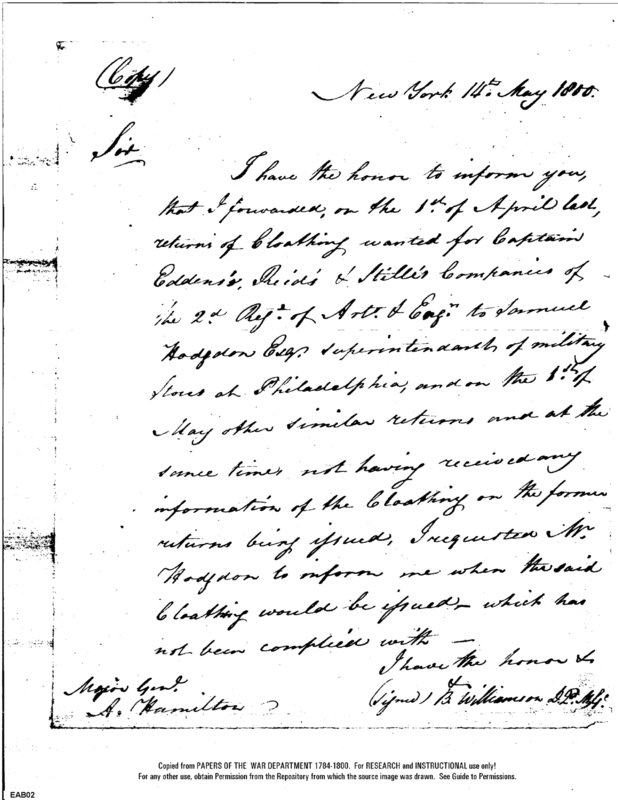 (Copy)
New York 14th. May 1800.
Sir
I have the honor to inform you,
that I forwarded, on the 1st. of April last,
returns of Cloathing wanted for Captain
Eddens's, Reid's & Stille's Companies of
the 2d. Regt. of Art. & Engrs. to Samuel
Hodgdon Esqr. Superintendant of military
Stores at Philadelphia, and on the 1st. of
May other similar returns and at the
same time, not having received any
information of the Cloathing on the former
returns being issued, I requested Mr.
Hodgdon to inform me when the said
Cloathing would be issued – which has
not been complied with —
I have the honor &
&
(signed) B. Williamson
Major Genl.
A. Hamilton
Copied from PAPERS OF THE WAR DEPARTMENT 1784-1800. For RESEARCH and INSTRUCTIONAL use only!
For any other use, obtain Permission from the Repository from which the source image was drawn. See Guide to Permissions.
EAB02